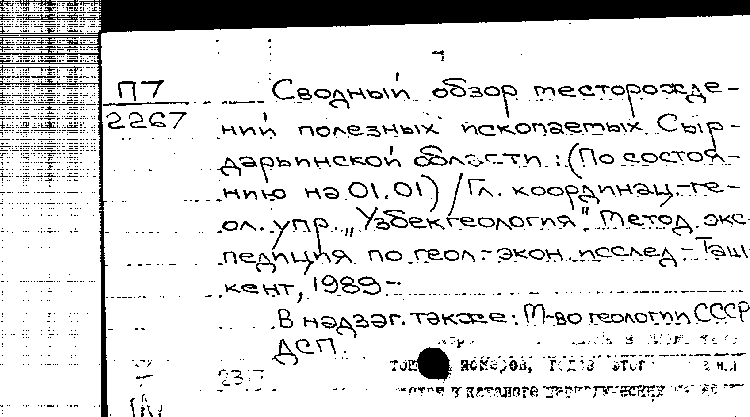 П7
2267
Сводный обзор месторожде-
ний полезных ископаемых Сыр-
дарьинской области: (По состоя-
нию на 01.01) / Гл. координац.-ге-
ол. упр. „Узбекгеология". Метод. экс-
педиция по геол.-экон. исслед.-Таш-
кент, 1989-
В надзаг. также: М-во геологии СССР
ДСП.
номеров, годов этог